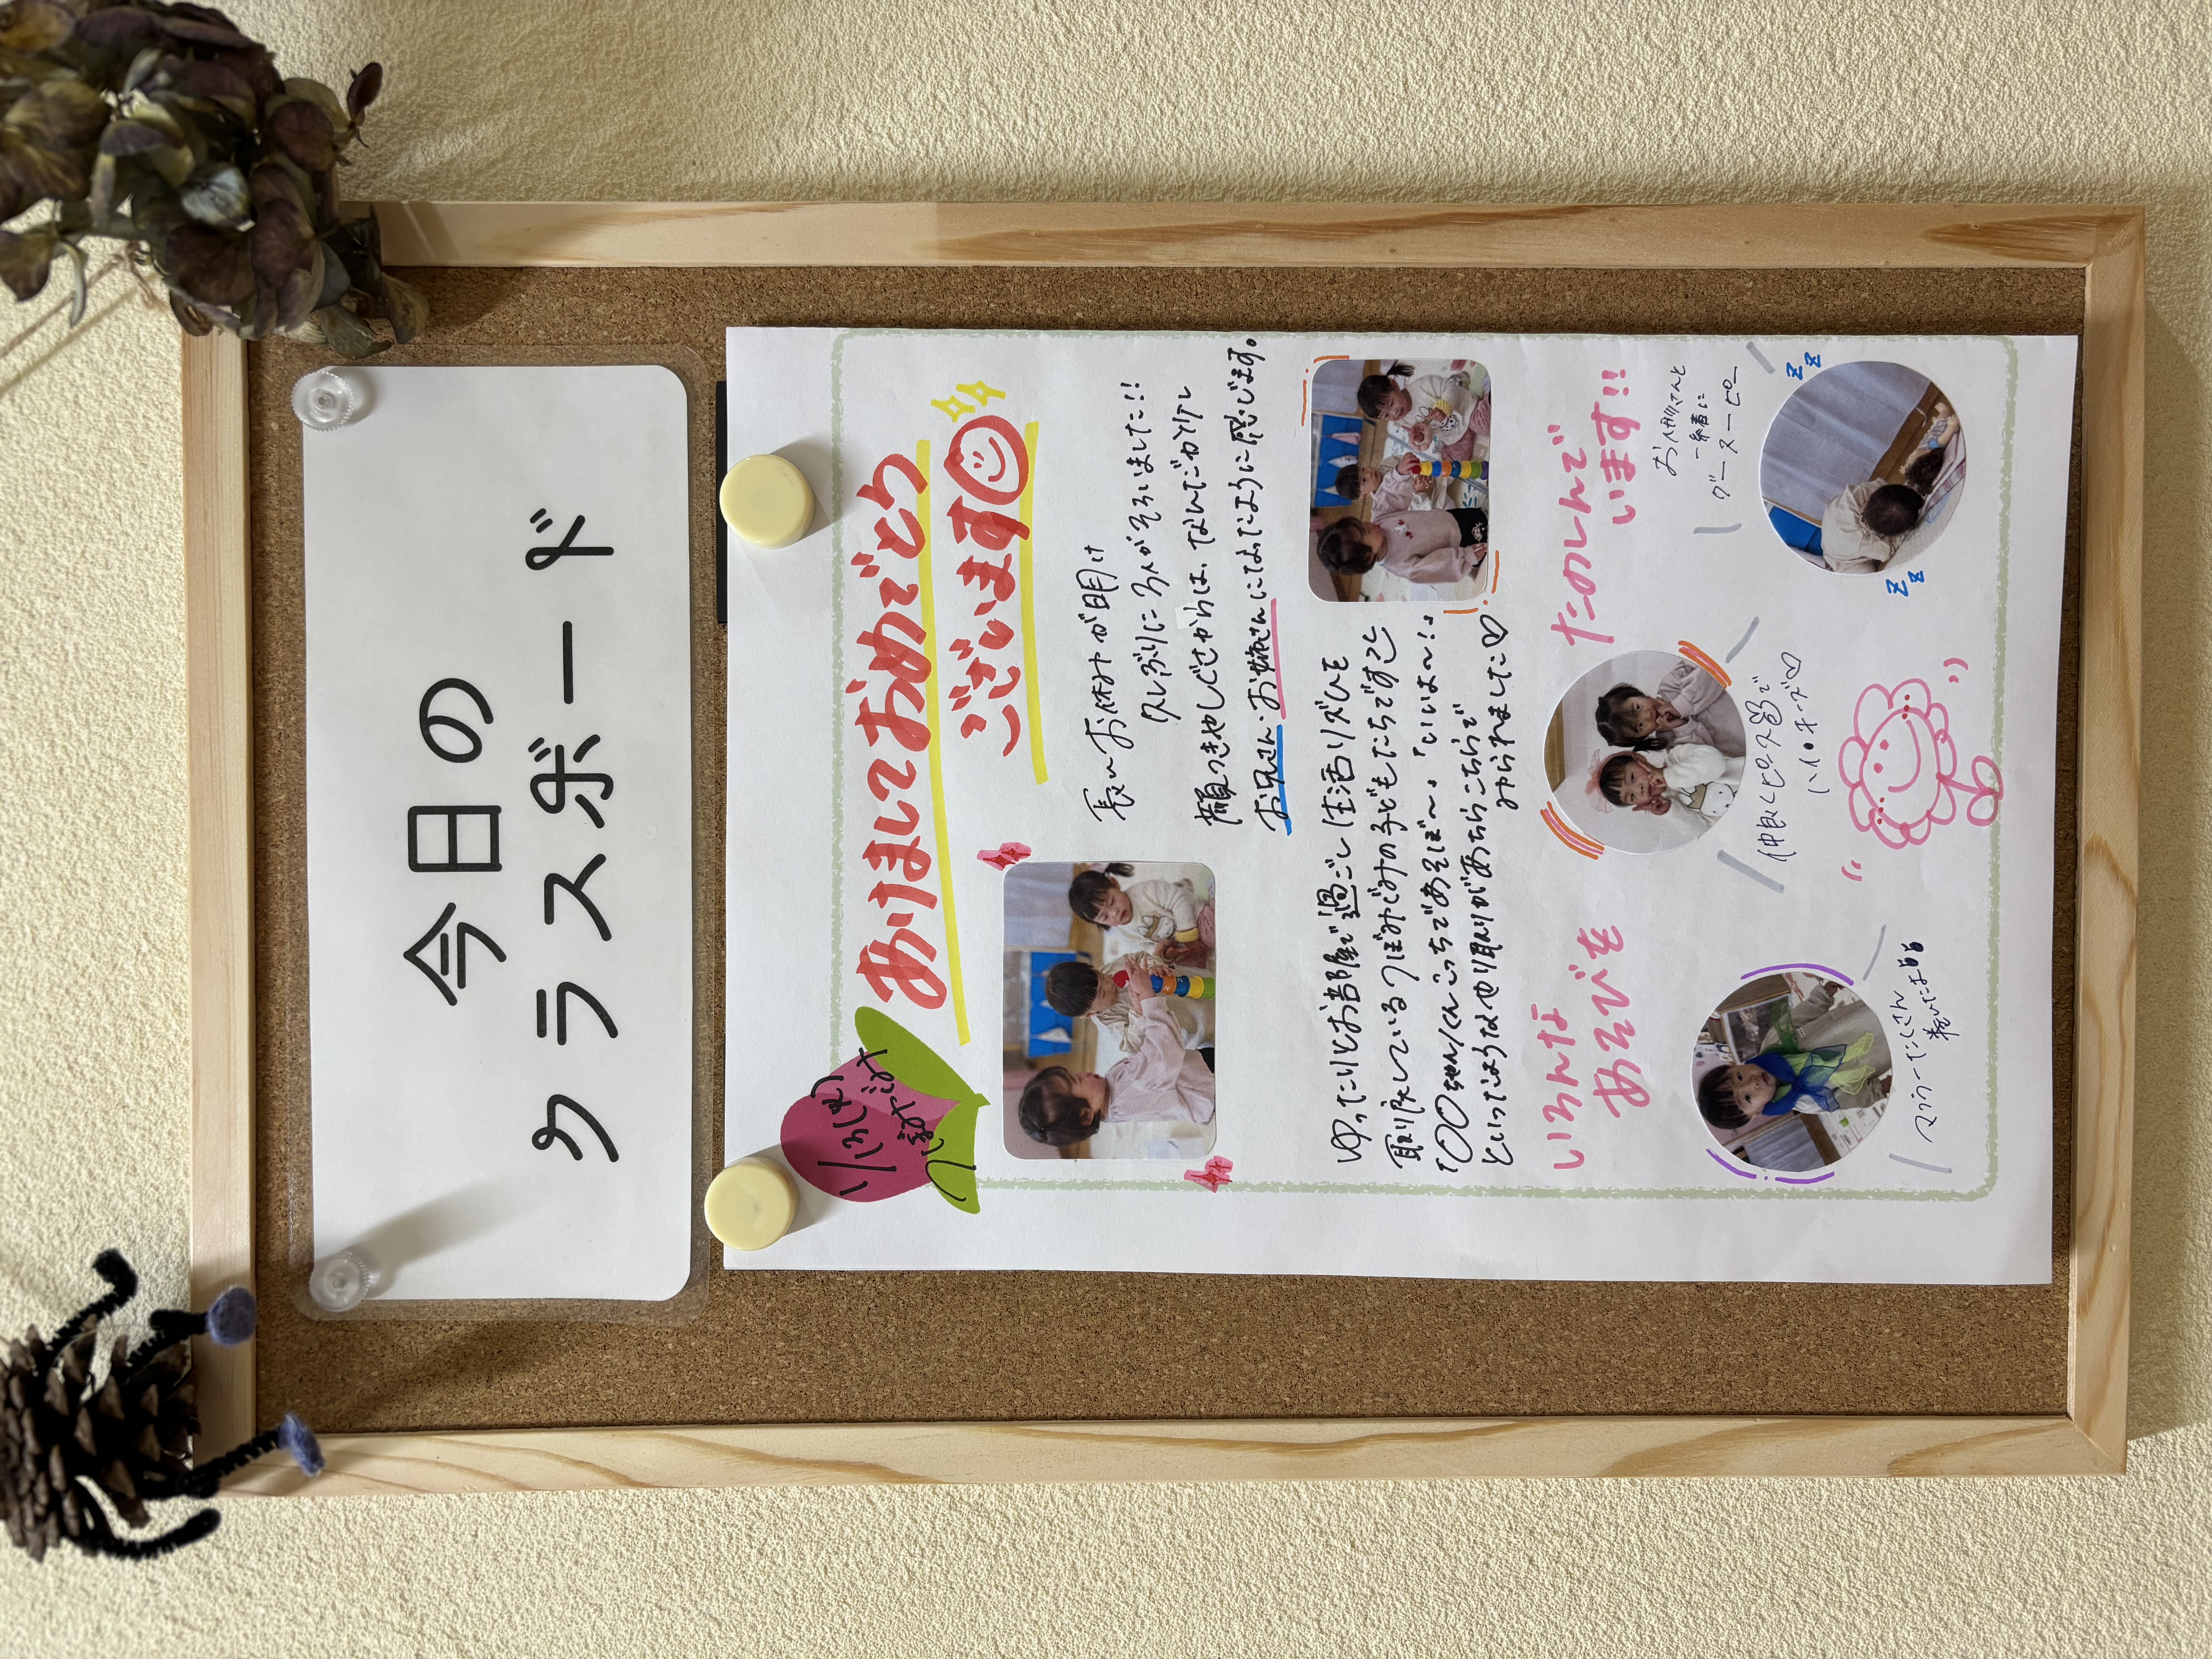 今日の
クラスボード
つぼみぐみ
あけましておめでとう
ございます
長〜いお休みが明け
久しぶりに3人がそろいました!!
顔つきやしぐさからは、なんだか少し
お兄さん・お姉さんになったように感じます。
ゆったりとお部屋で過ごし生活リズムを
取り戻しているつぼみぐみの子どもたちですが
「〇〇ちゃん/くんこっちであそぼ〜」「いいよ〜!」
といったようなやり取りがあちらこちらで
みられました♡
いろんな
あそびを
たのしんで
います!!
マフラーたくさん
巻いたよ
仲良くピース☮で
ハイ•チーズ♡
お人形さんと
一緒に
グースーピー
zz
zz